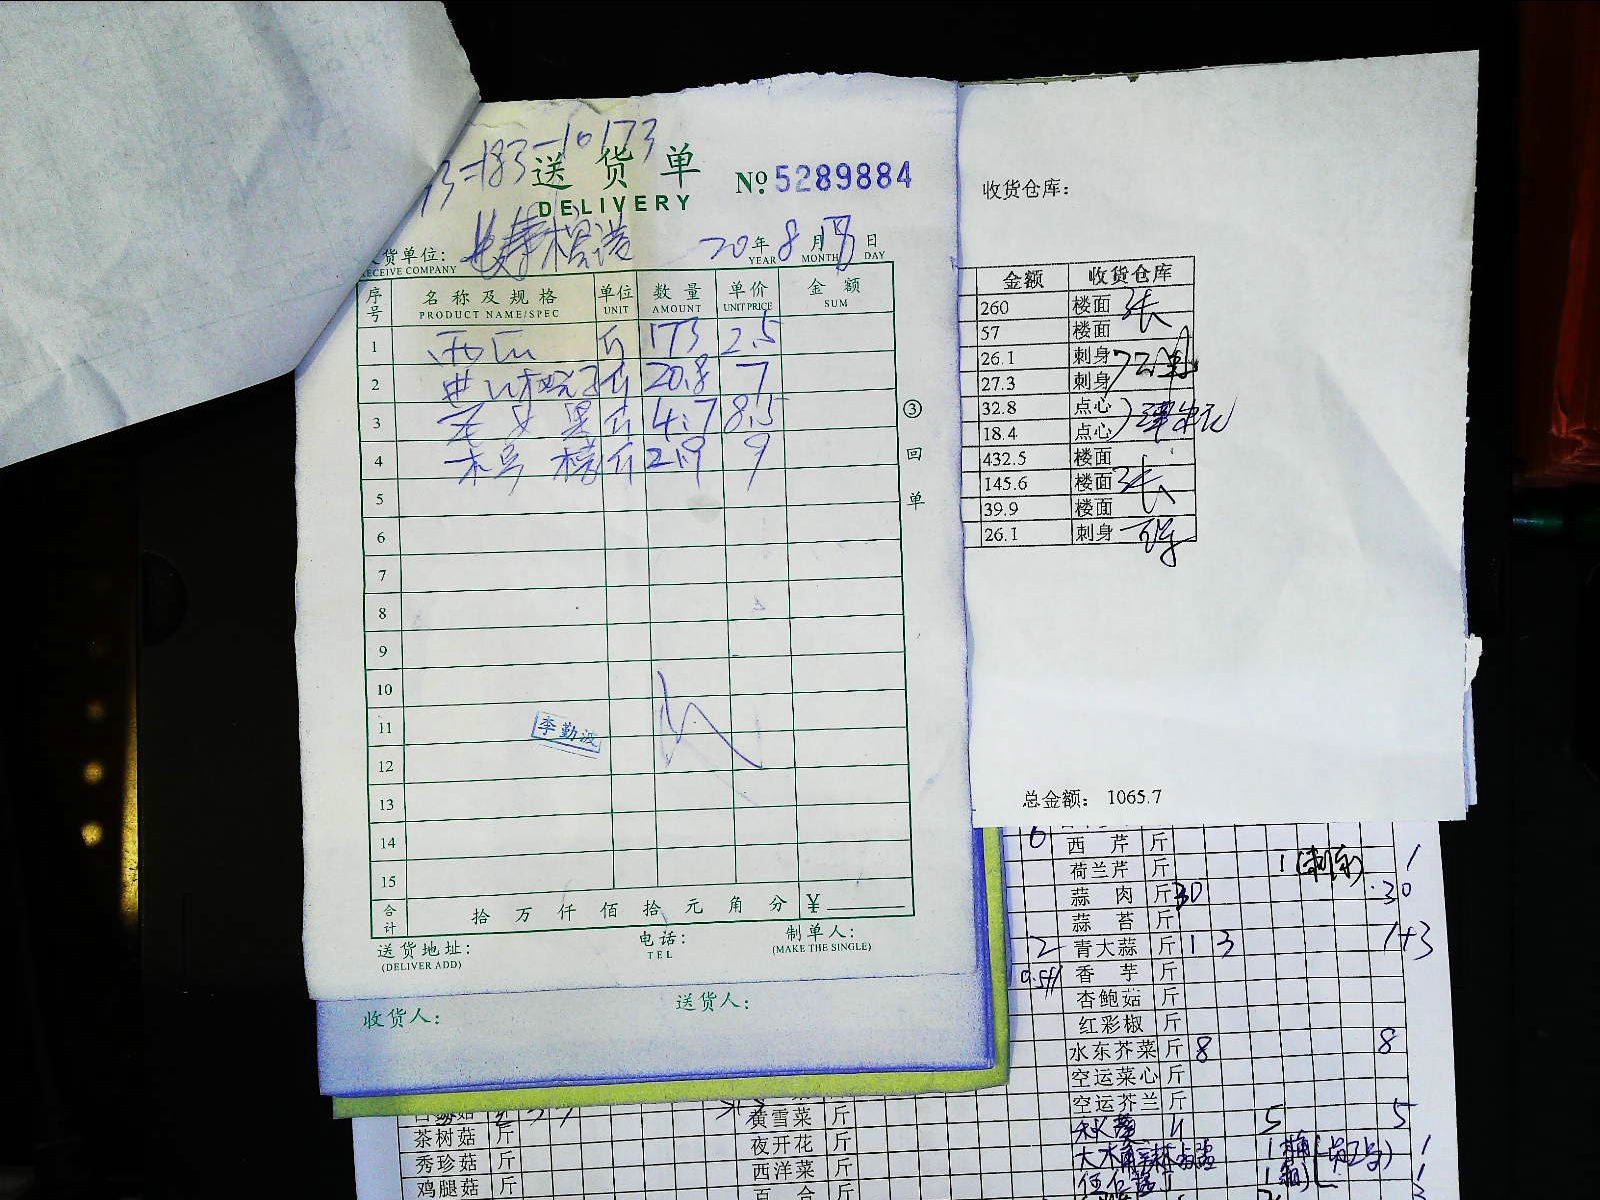 3-183-10173
送货单
DELIVERY
No. 5289884
货单位:
RECEIVE COMPANY
20年8月18日
YEAR MONTH DAY
序号 名称及规格 单位 数量 单价 金额
PRODUCT NAME/SPEC UNIT AMOUNT UNIT PRICE SUM
1 西瓜 斤 173 2.5
2 斤 20.8 7
3 斤 4.7 8.5
4 斤 2.9 9
5
6
7
8
9
10
11
12
13
14
15
李勤波
合计 拾 万 仟 佰 拾 元 角 分 ¥
③回单
送货地址:
(DELIVER ADD)
电话:
TEL
制单人:
(MAKE THE SINGLE)
收货人:
送货人:
收货仓库:
金额 收货仓库
260 楼面
57 楼面
26.1 刺身
27.3 刺身
32.8 点心
18.4 点心
432.5 楼面
145.6 楼面
39.9 楼面
26.1 刺身
总金额: 1065.7
6 西芹 斤
荷兰芹 斤 1 1
蒜肉 斤 30 30
蒜苔 斤
2 青大蒜 斤 1 3 1+3
香芋 斤
杏鲍菇 斤
红彩椒 斤
水东芥菜 斤 8 8
空运菜心 斤
空运芥兰 斤
秋葵 5 5
茶树菇 斤
秀珍菇 斤
鸡腿菇 斤
黄雪菜 斤
夜开花 斤
西洋菜 斤
百合 斤